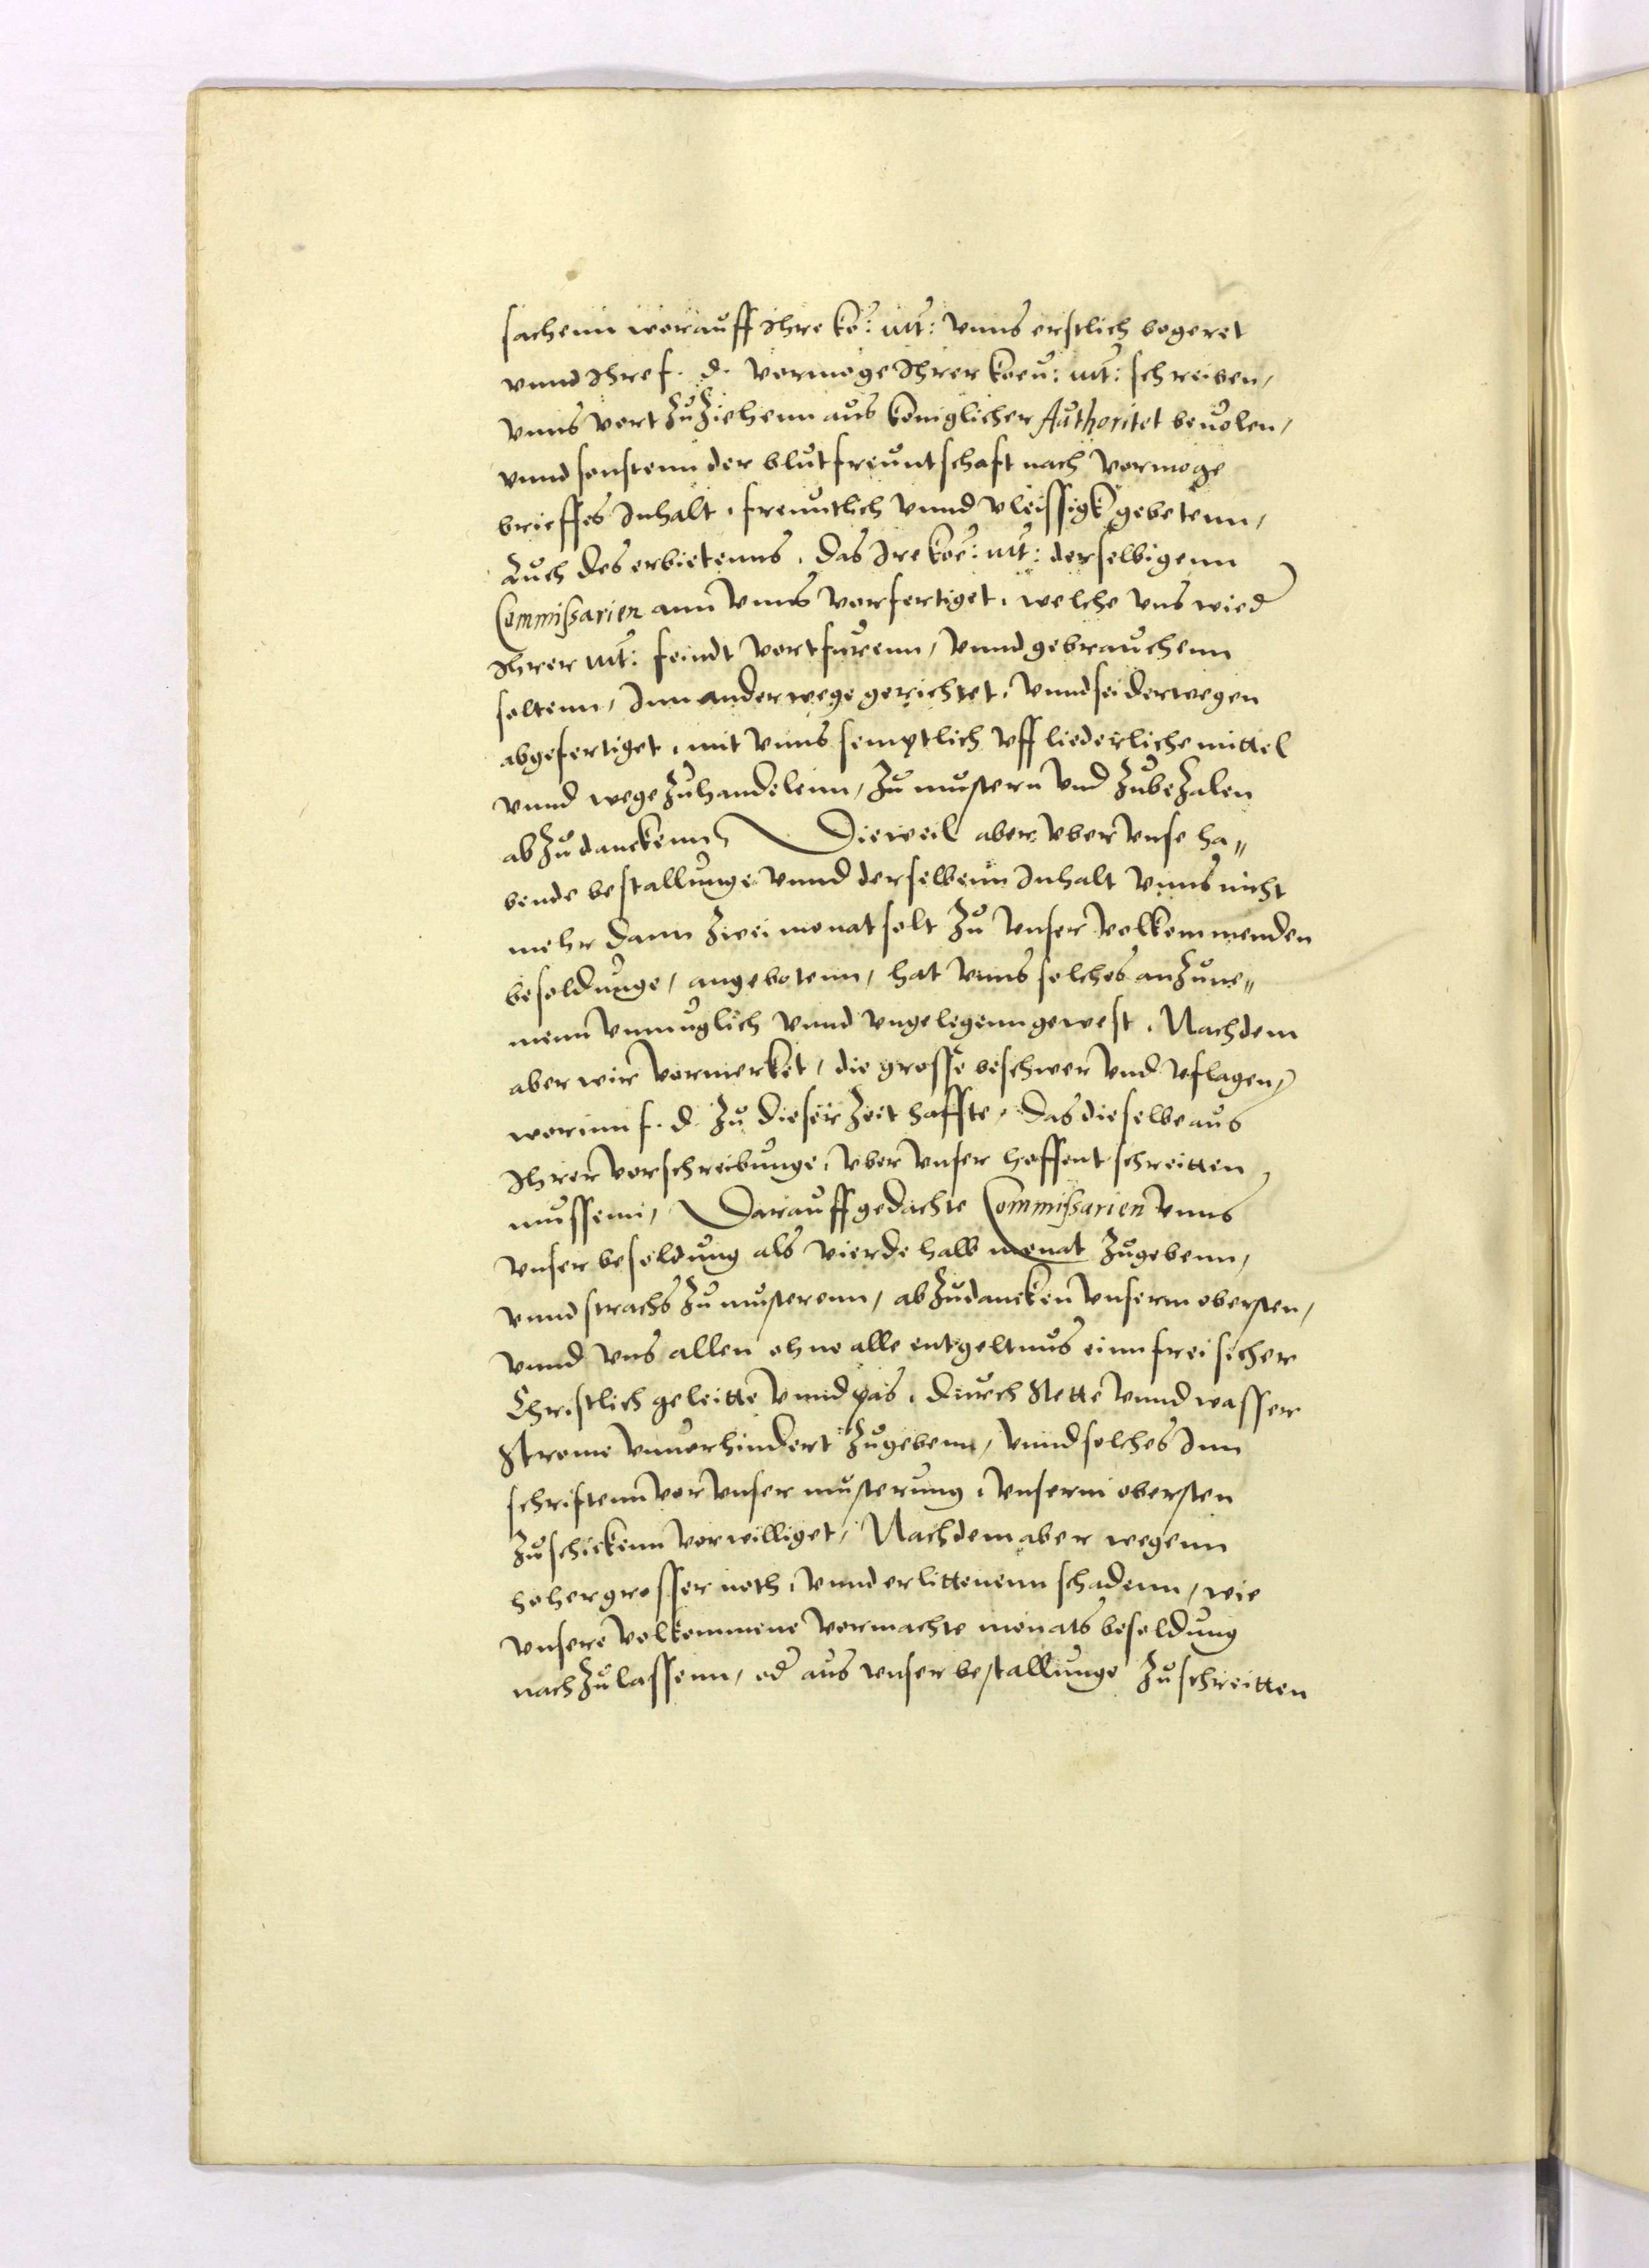 sachenn worauff Ihre ko: Mt: vnns erstlich begeret
vnnd Ihre f. d. vormoge Ihrer koen: Mt: schreiben,
vnns vort zuziehenn aus koniglicher Authoritet beuolen,
vnnd sonstenn der blutfreuntschaft nach vormoge
brieffes Inhalt, freuntlich vnnd vleissigk gebetenn,
Auch des erbietenns, das Ire koe: Mt: derselbigenn
Commissarien ann vnns vorfertiget, welche vns wied
Ihrer Mt: feindt vortfurenn, vnnd gebrauchenn
soltenn, Inn ander wege gerichtet, vnnd sei derwegen
abgefertiget, mit vnns semptlich vff liederliche mittel
vnnd wege zuhandelenn, zu mustern vnd zubezalen
abzudanckenn, Dieweil aber vber vnse ha„
bende bestallunge vnnd derselbenn Inhalt vnns nicht
mehr dann zwei monat solt zu vnser volkommenden
besoldunge, angebotenn, hat vnns solches anzune„
menn vnmuglich vnnd vngelegenn gewest, Nachdem
aber wir vormerket, die grosse beschwer vnd vflagen,
worinn f. d. zu dieser zeit haffte, das dieselbe aus
Ihrer vorschreibunge, vber vnser hoffent schreitten
mussenn, Darauff gedachte Commissarien vnns
vnser besoldung als vierdehalb monat zugebenn,
vnnd strachs zu musterenn, abzudancken vnserm obersten,
vnnd vns allen ohne alle entgeltnus einn frei sicher
Christlich geleitte vnnd pas, durch Stette vnnd wasser
Strome vnuerhindert zugebenn, vnnd solches Inn
schriftenn vor vnser musterung, vnserm obersten
zuschickenn vorwilliget, Nachdem aber wegenn
hoher grosser noth, vnnd erlittenenn schadenn, wie
vnsere volkommene vormachte monats besoldung
nachzulassenn, od aus vnser bestallunge zuschreitten